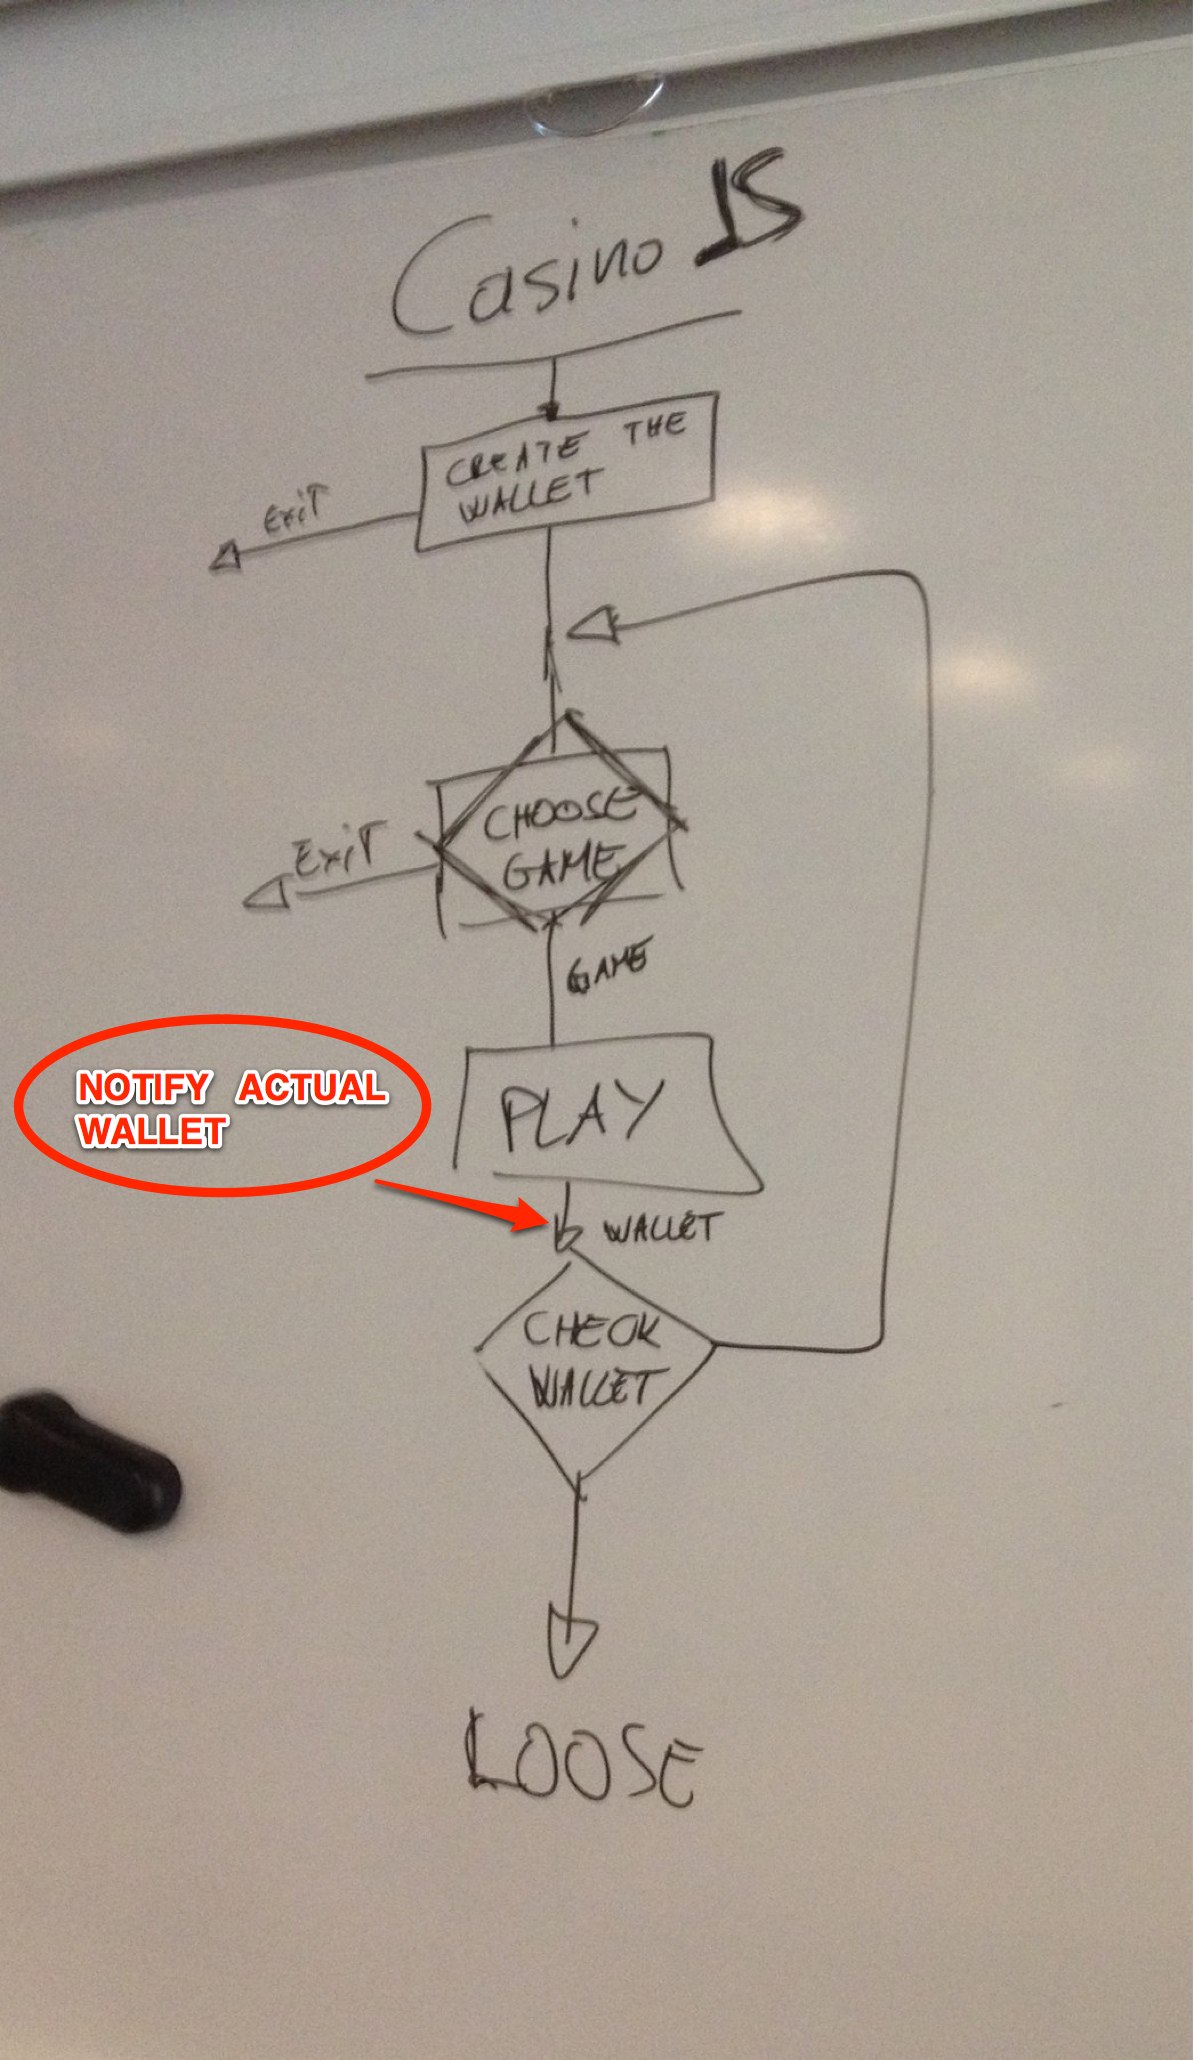 Casino JS
CREATE THE
WALLET
ExiT
CHOOSE
GAME
ExiT
GAME
NOTIFY ACTUAL
WALLET
PLAY
WALLET
CHECK
WALLET
LOOSE